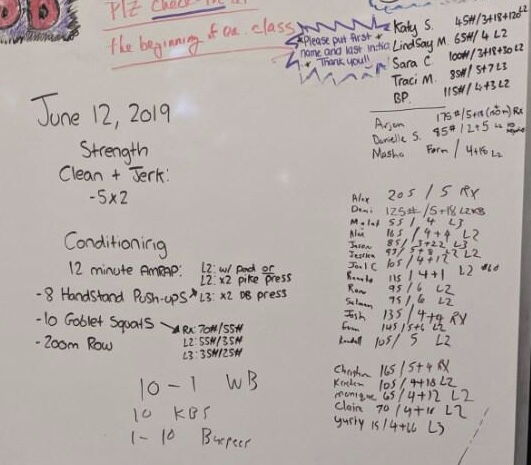 Plz check
the beginning of our class
*Please put first +
name and last initial
Thank you!!
Katy S. 45# / 3+18+12 L2
Lindsay M 65# / 4 L2
Sara C. 100# / 3+18+30 L2
Traci M. 85# / 5+7 L3
BP. 115# / 4+3 L2
Arjun 175# / 5+18 Rx
Danielle S. 95# / 2+5 L2
Masha Form / 4+18 L2
June 12, 2019
Strength
Clean + Jerk:
-5x2
Conditioning
12 minute AMRAP:
L2: w/ pad or
L2: x2 pike press
-8 Handstand Push-ups
L3: x2 DB press
-10 Goblet Squats
RX: 70#/55#
L2: 55#/35#
L3: 35#/25#
-200m Row
10-1 WB
10 KBS
1-10 Burpees
Alex 205 / 5 RX
Demi 125# / 5+18 L2
55 / 4 L3
165 / 4+4 L2
Jason 85 / 3+22 L3
Jessica 95 / 5+8 L2
Joel C 105 / 4+12 L2
115 / 4+1 L2
95 / 6 L2
95 / 6 L2
Josh 135 / 4+4 RX
145 / 5+6 L2
105 / 5 L2
Christian 165 / 5+4 RX
Kirsten 105 / 4+18 L2
monique 65 / 4+12 L2
Claire 70 / 4+18 L2
yuriy 15 / 4+26 L3